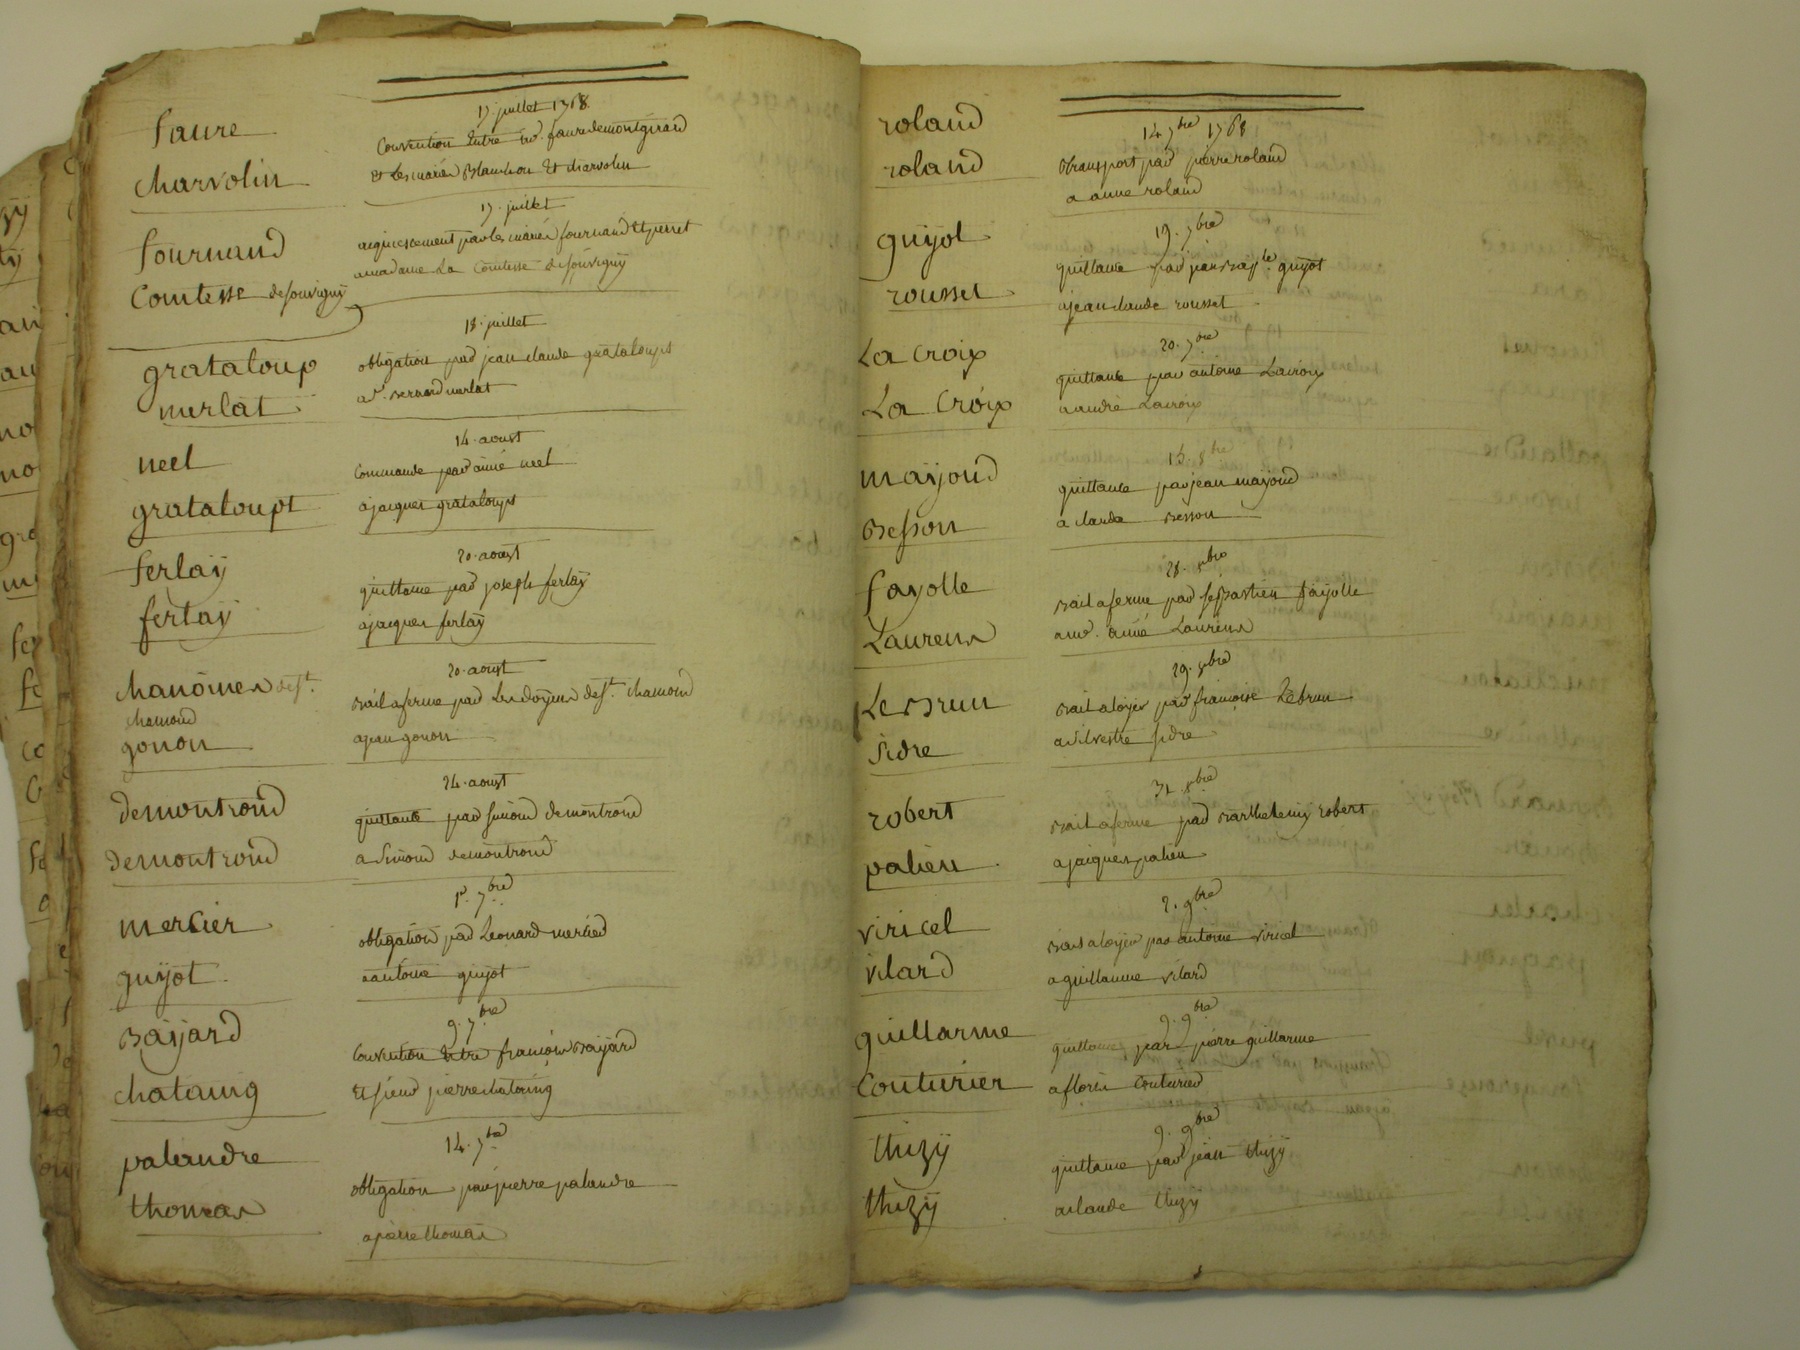 faure
charvolin
17 juillet 1768
Convention Entre md. faure demontgirard
Et les mariés Blanchon Et charvolin
fournaud
Comtesse desouvigny
17. juillet
acquiescement par les mariés fournaud Et perret
amadame La Comtesse desouvigny
grataloup
merlat
18. juillet
obligation par jean claude grataloups
a sr. Bernard merlat
neel
grataloupt
14. aoust
Commande par aimé neel
a jacques grataloups
ferlaÿ
ferlaÿ
20. aoust
quittance par joseph ferlaÿ
a jacques ferlaÿ
chanoines de st.
chamond
gonon
20. aoust
Bail aferme par Les doyens de st. chamond
ajean gonon
demontrond
demontrond
24. aoust
quittance par simond demontrond
a Simond demontrond
mercier
guÿot
1er. 7bre
obligation par Leonard mercier
a antoine guÿot
Baÿard
chataing
9. 7bre
Convention Entre francois Baÿard
Et sieur pierre chataing
palandre
thomas
14. 7bre
obligation par pierre palandre
a pierre thomas
roland
roland
14 7bre 1768
transport par pierre roland
a anne roland
guÿot
rousset
19. 7bre
quittance par jean Bapte. guÿot
ajean claude rousset
La croix
La Croix
20. 7bre
quittance par antoine Lacroix
a andré Lacroix
maÿoud
Besson
13. 8bre
quittance par jean maÿoud
a claude Besson
fayolle
Laurens
28. 8bre
Bail aferme par sébastien faÿolle
a md. aimé Laurens
Le Brun
sidre
29. 8bre
Bail aloyer par francoise LeBrun
a Silvestre sidre
robert
palien
31. 8bre
Bail aferme par Barthelemÿ robert
a jacques palien
viricel
vilard
2. 9bre
Bail aloyer par antoine viricel
a guillaume vilard
guillarme
Couturier
9. 9bre
quittance par pierre guillarme
a floris Couturier
thizÿ
thizÿ
9. 9bre
quittance par jean thizÿ
a claude thizÿ